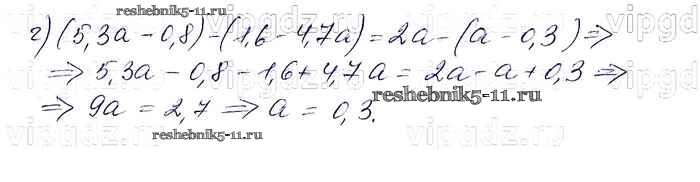 reshebnik5-11.ru
г) (5,3a - 0,8) - (1,6 - 4,7a) = 2a - (a - 0,3) ⇒
⇒ 5,3a - 0,8 - 1,6 + 4,7a = 2a - a + 0,3 ⇒
reshebnik5-11.ru
⇒ 9a = 2,7 ⇒ a = 0,3.
reshebnik5-11.ru